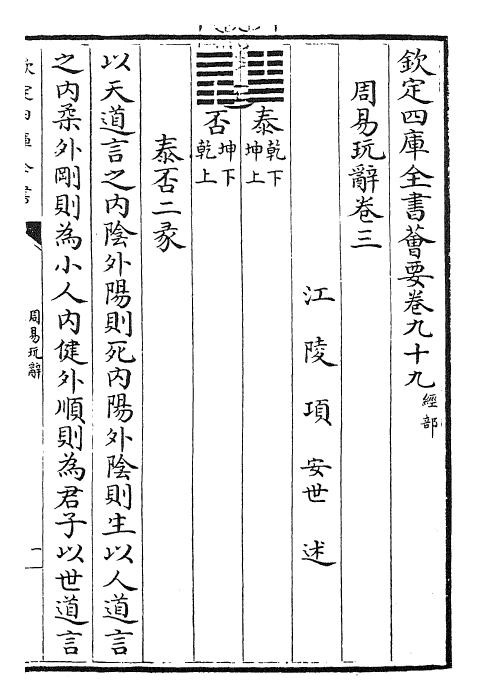 欽定四庫全書薈要卷九十九
經部
周易玩辭卷三
江陵項安世述
泰 乾下坤上
否 坤下乾上
泰否二彖
以天道言之内陰外陽則死内陽外陰則生以人道言
之内柔外剛則為小人内健外順則為君子以世道言
周易玩辭
一